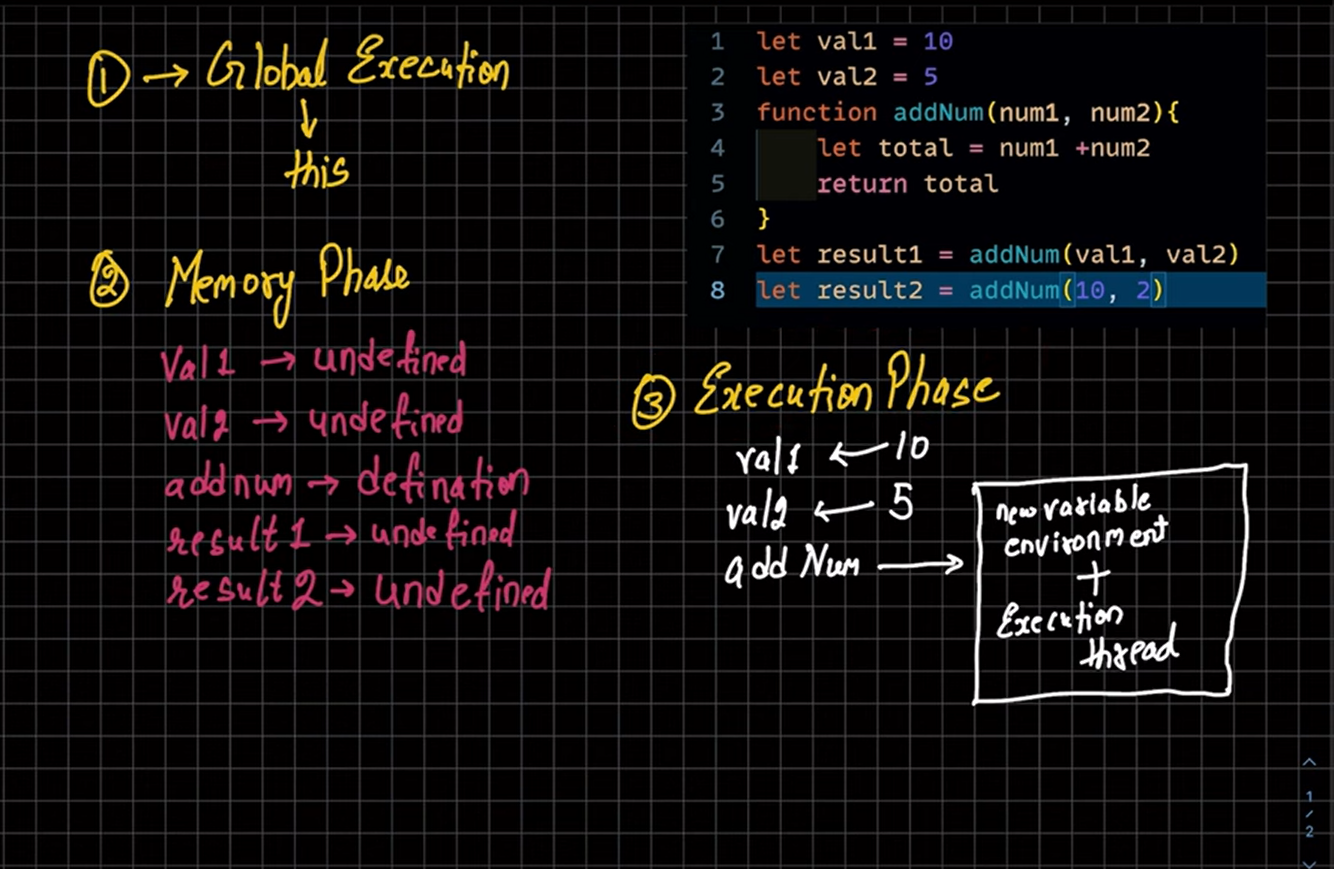 ① → Global Execution
↓
this
② Memory Phase
Val1 → undefined
val2 → undefined
addnum → defination
result1 → undefined
result2 → undefined
1 let val1 = 10
2 let val2 = 5
3 function addNum(num1, num2){
4 let total = num1 +num2
5 return total
6 }
7 let result1 = addNum(val1, val2)
8 let result2 = addNum(10, 2)
③ Execution Phase
val1 ← 10
val2 ← 5
add Num →
new variable
environment
+
Execution
thread
1
/
2